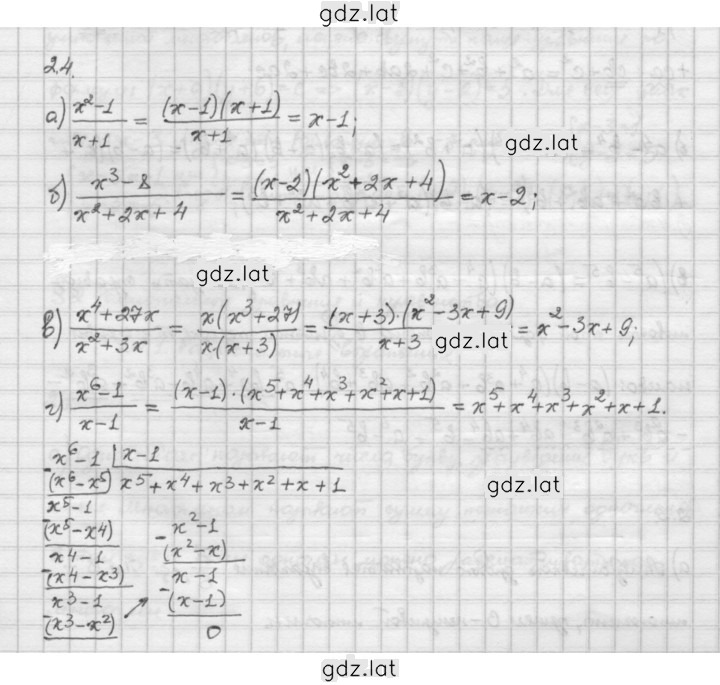 gdz.lat
2.4.
а) (x²-1)/(x+1) = ((x-1)(x+1))/(x+1) = x-1;
gdz.lat
б) (x³-8)/(x²+2x+4) = ((x-2)(x²+2x+4))/(x²+2x+4) = x-2;
gdz.lat
в) (x⁴+27x)/(x²+3x) = (x(x³+27))/(x·(x+3)) = ((x+3)·(x²-3x+9))/(x+3) = x²-3x+9;
gdz.lat
г) (x⁶-1)/(x-1) = ((x-1)·(x⁵+x⁴+x³+x²+x+1))/(x-1) = x⁵+x⁴+x³+x²+x+1.
-x⁶-1 | x-1
(x⁶-x⁵) x⁵+x⁴+x³+x²+x+1
gdz.lat
x⁵-1
-(x⁵-x⁴)
x⁴-1
-(x⁴-x³)
x³-1
-(x³-x²)
-x²-1
(x²-x)
x-1
-(x-1)
0
gdz.lat